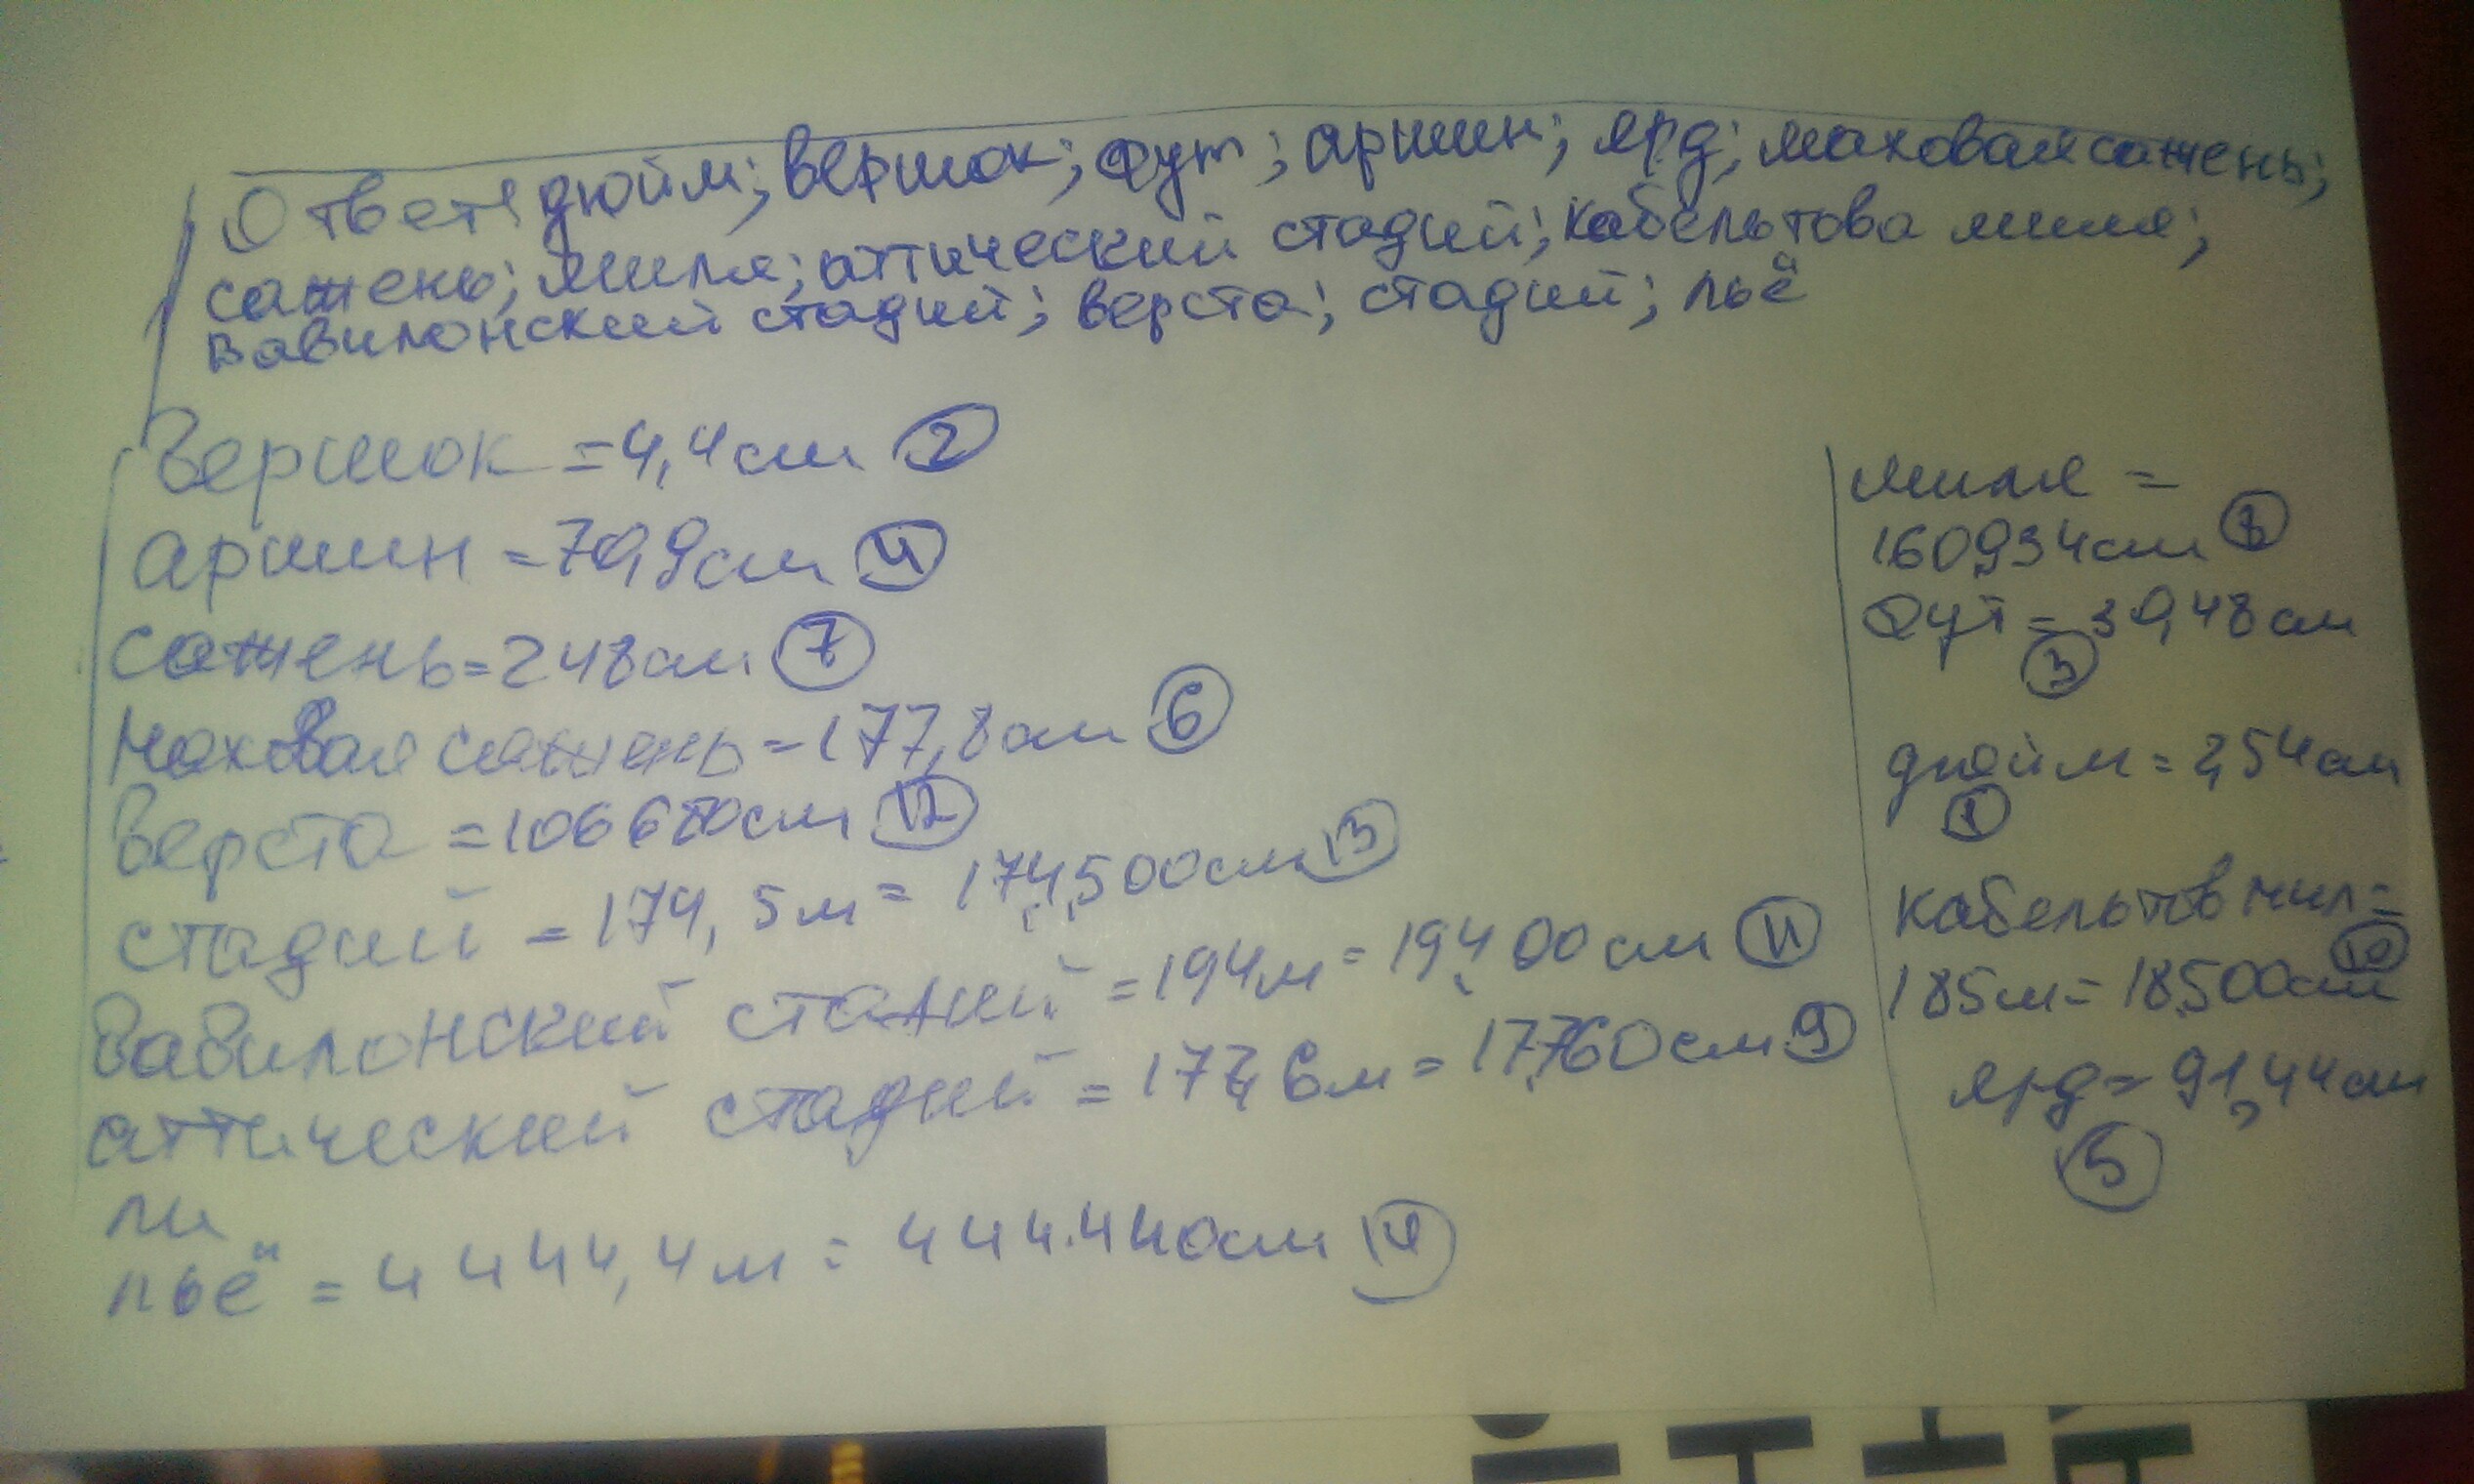 Ответ: дюйм; вершок; фут; аршин; ярд; маховая сажень;
сажень; миля; аттический стадий; кабельтова миля;
вавилонский стадий; верста; стадий; льё
Вершок = 4,4 см 2
аршин = 70,9 см 4
сажень = 248 см 7
маховая сажень = 177,8 см 6
верста = 106680 см 12
стадий = 174,5 м = 174,500 см 13
вавилонский стадий = 194 м = 19400 см 11
аттический стадий = 177,6 м = 17760 см 9
ли
льё = 4444,4 м = 444.440 см 14
миля =
160934 см 8
Фут = 30,48 см
3
дюйм = 2,54 см
1
кабельтов мил =
185 м = 18500 см 10
ярд = 91,44 см
5